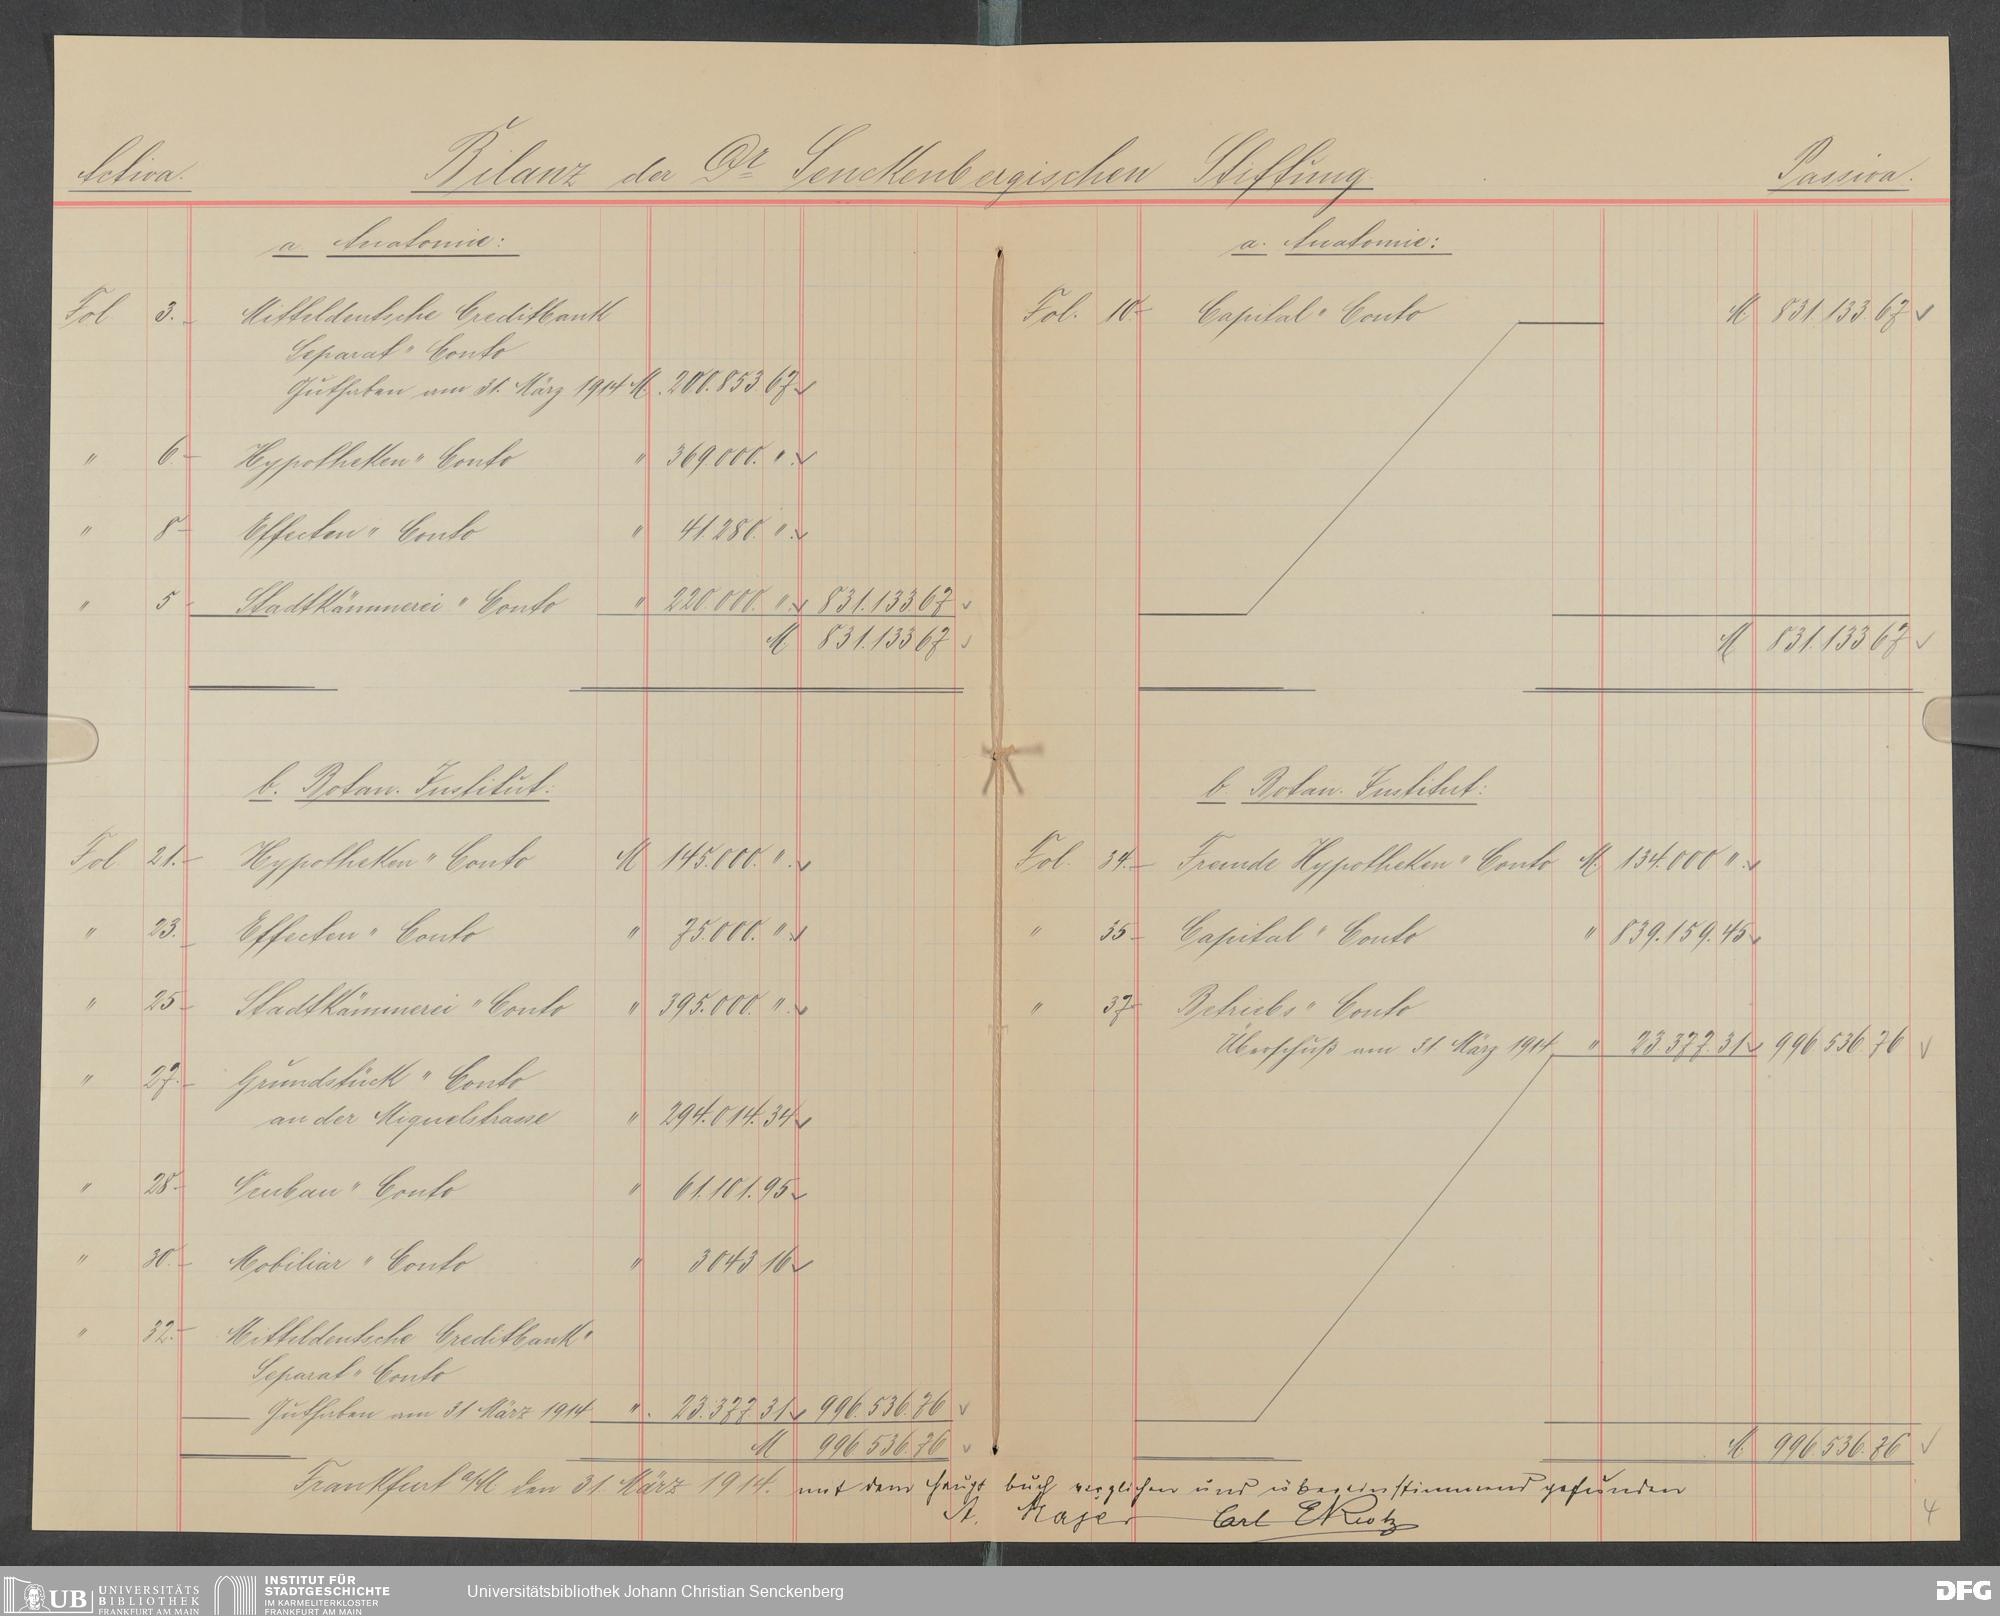 Activa. Bilanz der Dr Senckenbergischen Stiftung Passiva.
a. Anatomie:
Fol. 3. Mitteldeutsche Creditbank
Separat" Conto
Guthaben am 31. März 1914 M. 200.853 67
" 6. Hypotheken" Conto " 369.000. "
" 8 Effecten" Conto " 41.280. "
" 5 Stadtkämmerei" Conto " 220.000. " 831.133 67
M 831.133 67
b. Botan. Institut:
Fol. 21. Hypotheken" Conto M 145.000. "
" 23. Effecten" Conto " 75.000. "
" 25 Stadtkämmerei" Conto " 395.000. "
" 27. Grundstück" Conto
an der Miquelstrasse " 294.014.34
" 28 Neubau" Conto " 61.101.95
" 30. Mobiliar" Conto " 3043 16
" 32. Mitteldeutsche Creditbank"
Separat" Conto
Guthaben am 31 März 1914 " 23.377 31 996.536.76
M 996 536.76
a. Anatomie:
Fol. 10 Capital" Conto M 831.133.67
M 831.133 67
b. Botan. Institut:
Fol. 34. Fremde Hypotheken" Conto M. 134.000 "
" 35 Capital" Conto " 839.159.45
" 37 Betriebs" Conto
Überschuß am 31. März 1914 " 23.377.31 996.536.76
M. 996.536.76
Frankfurt a/M den 31. März 1914. mit dem Hauptbuch verglichen und übereinstimmend gefunden
A. Majer Carl
4
UB UNIVERSITÄTS
BIBLIOTHEK
FRANKFURT AM MAIN
INSTITUT FÜR
STADTGESCHICHTE
IM KARMELITERKLOSTER
FRANKFURT AM MAIN
Universitätsbibliothek Johann Christian Senckenberg
DFG